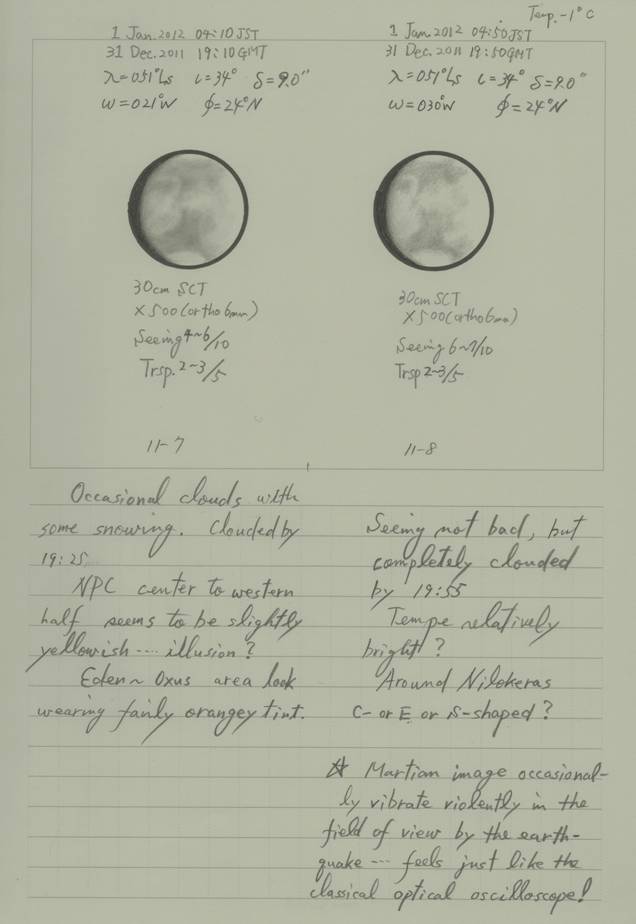 Temp. -1°C
1 Jan. 2012 04:10 JST
31 Dec. 2011 19:10 GMT
λ=051°Ls ι=34° δ=9.0"
ω=021°W φ=24°N
30cm SCT
×500 (ortho 6mm)
Seeing 4~6/10
Trsp. 2~3/5
11-7
Occasional clouds with
some snowing. Clouded by
19:25.
NPC center to western
half seems to be slightly
yellowish ---- illusion?
Eden ~ Oxus area look
wearing fairly orangey tint.
1 Jan. 2012 04:50 JST
31 Dec. 2011 19:50 GMT
λ=051°Ls ι=34° δ=9.0"
ω=030°W φ=24°N
30cm SCT
×500 (ortho 6mm)
Seeing 6~7/10
Trsp 2~3/5
11-8
Seeing not bad, but
completely clouded
by 19:55
Tempe relatively
bright?
Around Nilokeras
C- or E or S-shaped?
☆ Martian image occasional-
ly vibrate violently in the
field of view by the earth-
quake --- feels just like the
classical optical oscilloscope!